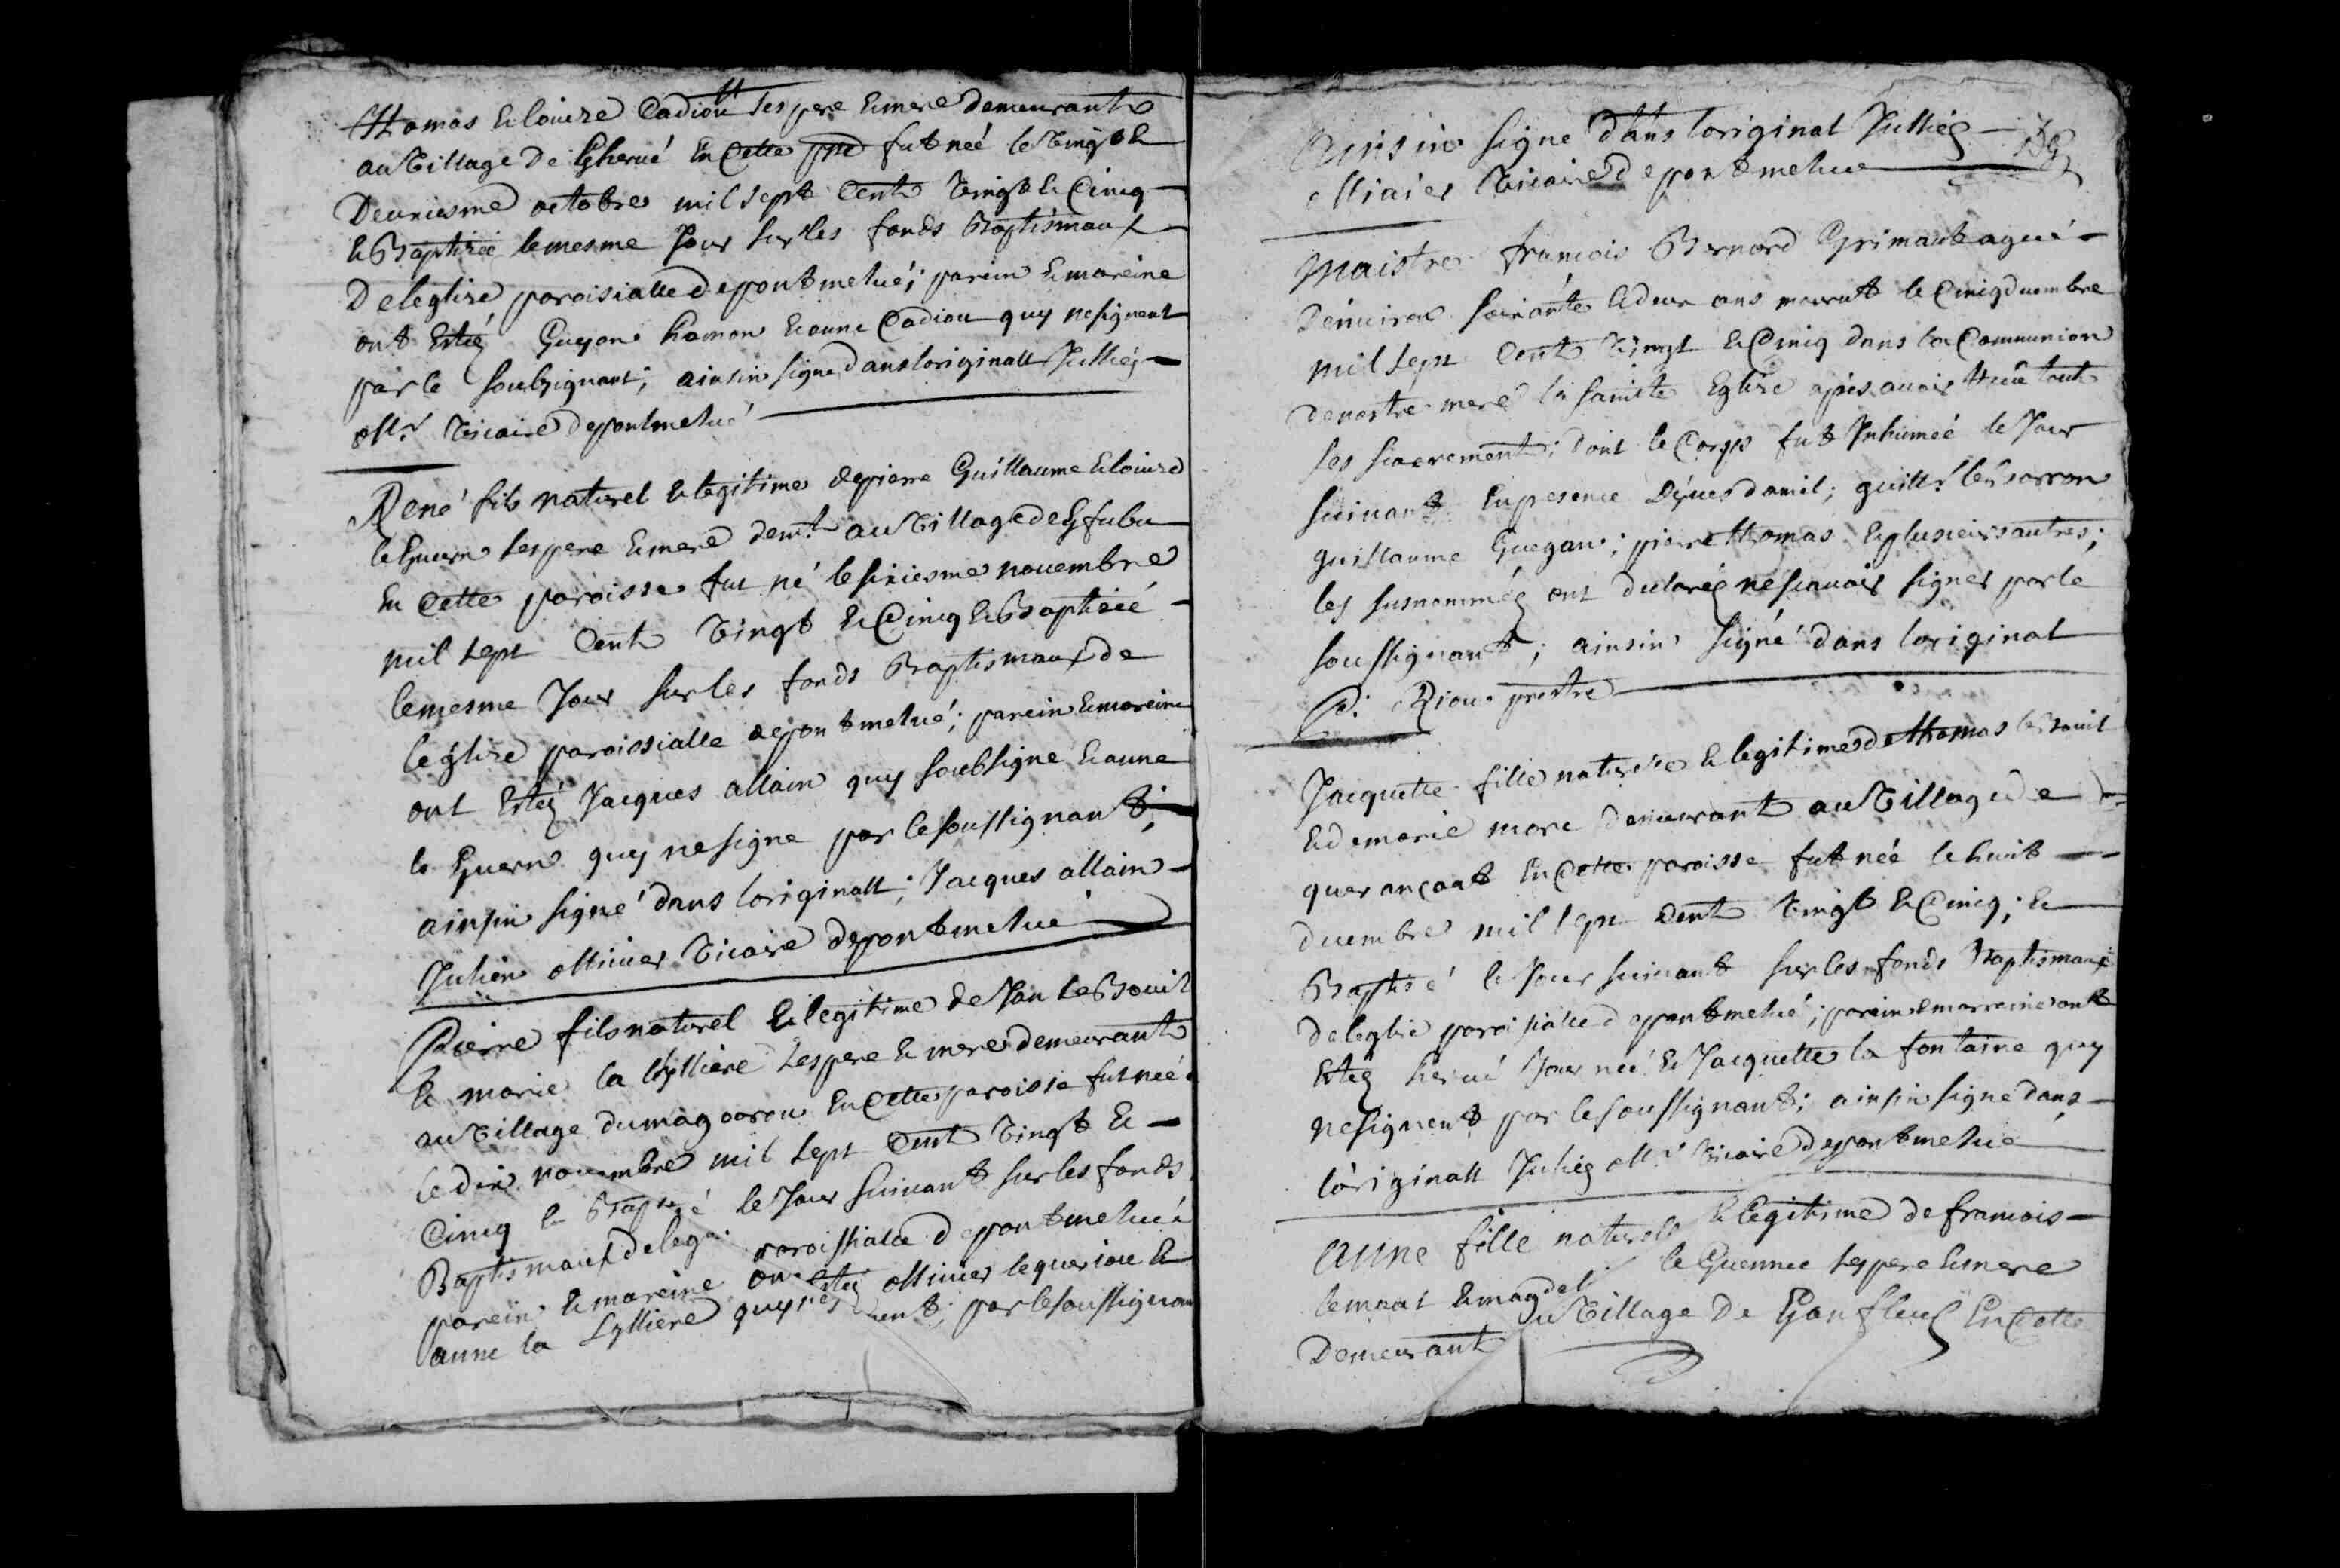 Thomas & louize Cadiou ses pere & mere demeurants
au Village de Kherué En Cette psse fut née le Vingt &
Deuxiesme octobre mil sept Cents Vingt & Cincq
& Baptizée le mesme Jour sur les fonds Baptismaux
De leglize paroisialle de pontmelué; parein & mareine
ont Estés Guyon hamon & anne Cadiou quy ne signent
par le soubsignant; ainsin signe dans loriginall Julliës
oll.r Vicaire de pontmelué
René fils naturel & legitime de pierre Guillaume & louize
le Guern ses pere & mere dem.t au Village de Kfubu
En Cette paroisse fut né le sixiesme nouembre
mil sept Cents Vingt & Cincq & Baptizé
le mesme Jour sur les fonds Baptismaux de
leglize paroissialle de pontmelué; parein & mareine
ont Estés Jacques allain quy soubsigne & anne
le Guern quy ne signe par le soussignant;
ainsin signé dans loriginall; Jacques allain
Julien ollivier Vicaire de pontmelué
Pierre fils naturel & legitime de Jan le Bouil
& marie la lylliere ses pere & mere demeurants
au Village du magoarou En Cette paroisse fut née
le dix nouembre mil sept Cent Vingt &
Cincq & Bapt é le Jour suiuant sur les fonds
Baptismaux de legl paroissialle de pontmelué
parein & mareine ont Estés ollivier le queriou &
anne la Lylliere quy ne s nent; par le soussignan
ainsin signe dans loriginal Julliës
olliuier Vicaire de pontmelué
Maistre francois Bernard Grimault agué
Denuiron soixante & deux ans mourut le Cincq decembre
mil sept Cents Vingt & Cincq dans la Communion
de nostre mere la sainte Eglize apres auoir Receu touts
les sacrements; dont le Corps fut Inhumée le Jour
suiuant En presence Dyues daniel; guill.e le
guillaume Guegan; pierre thomas & plusieurs autres;
les susnommés ont declarés ne scauoir signer par le
soussignant; ainsin signé dans loriginal
P: Riou prestre
Jacquette fille naturelle & legitime de thomas le bouil
& de marie more demeurants au Village de
querançoat En Cette paroisse fut née le huit
decembre mil sept Cents Vingt & Cincq; &
Baptisé le Jour suiuant sur les fonds Baptismaux
de leglise paroisialle de pontmelué; parein & marreine ont
Estés herué Journeé & Jacquette la fontaine quy
ne signent par le soussignant; ainsin signe dans
loriginall Juliës oll.r Vicaire de pontmelué
anne fille naturelle & legitime de francois
& magdel le Guennec ses pere & mere
Demeurants au Village De En Cette